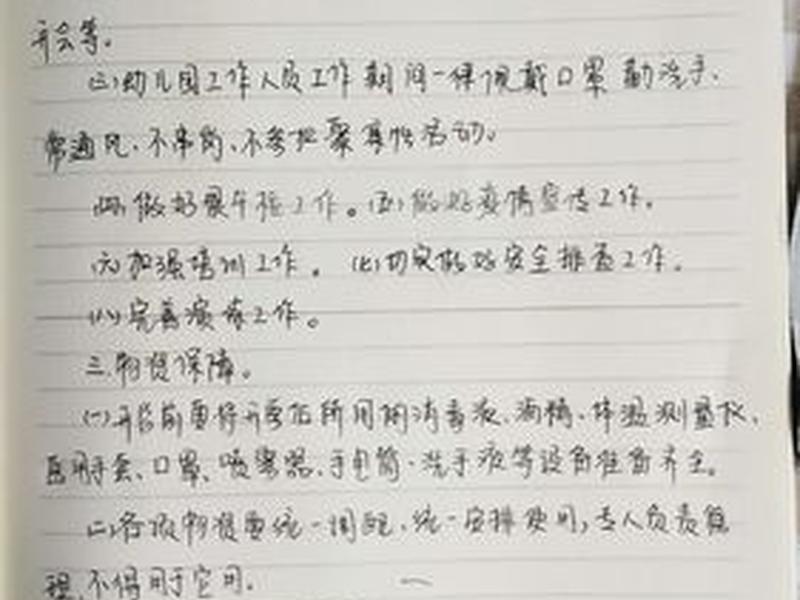 开会等。
(三)幼儿园工作人员工作期间一律佩戴口罩、勤洗手、
常通风、不串岗、不参加聚集性活动。
(四)做好晨午检工作。(五)做好疫情宣传工作。
(六)加强培训工作。(七)切实做好安全排查工作。
(八)完善演练工作。
三.物资保障。
(一)开学前要将开学后所用的消毒液、酒精、体温测量仪、
医用手套、口罩、喷雾器、手电筒、洗手液等设备准备齐全。
(二)各项物资要统一调配、统一安排使用,专人负责管
理,不得用于它用。